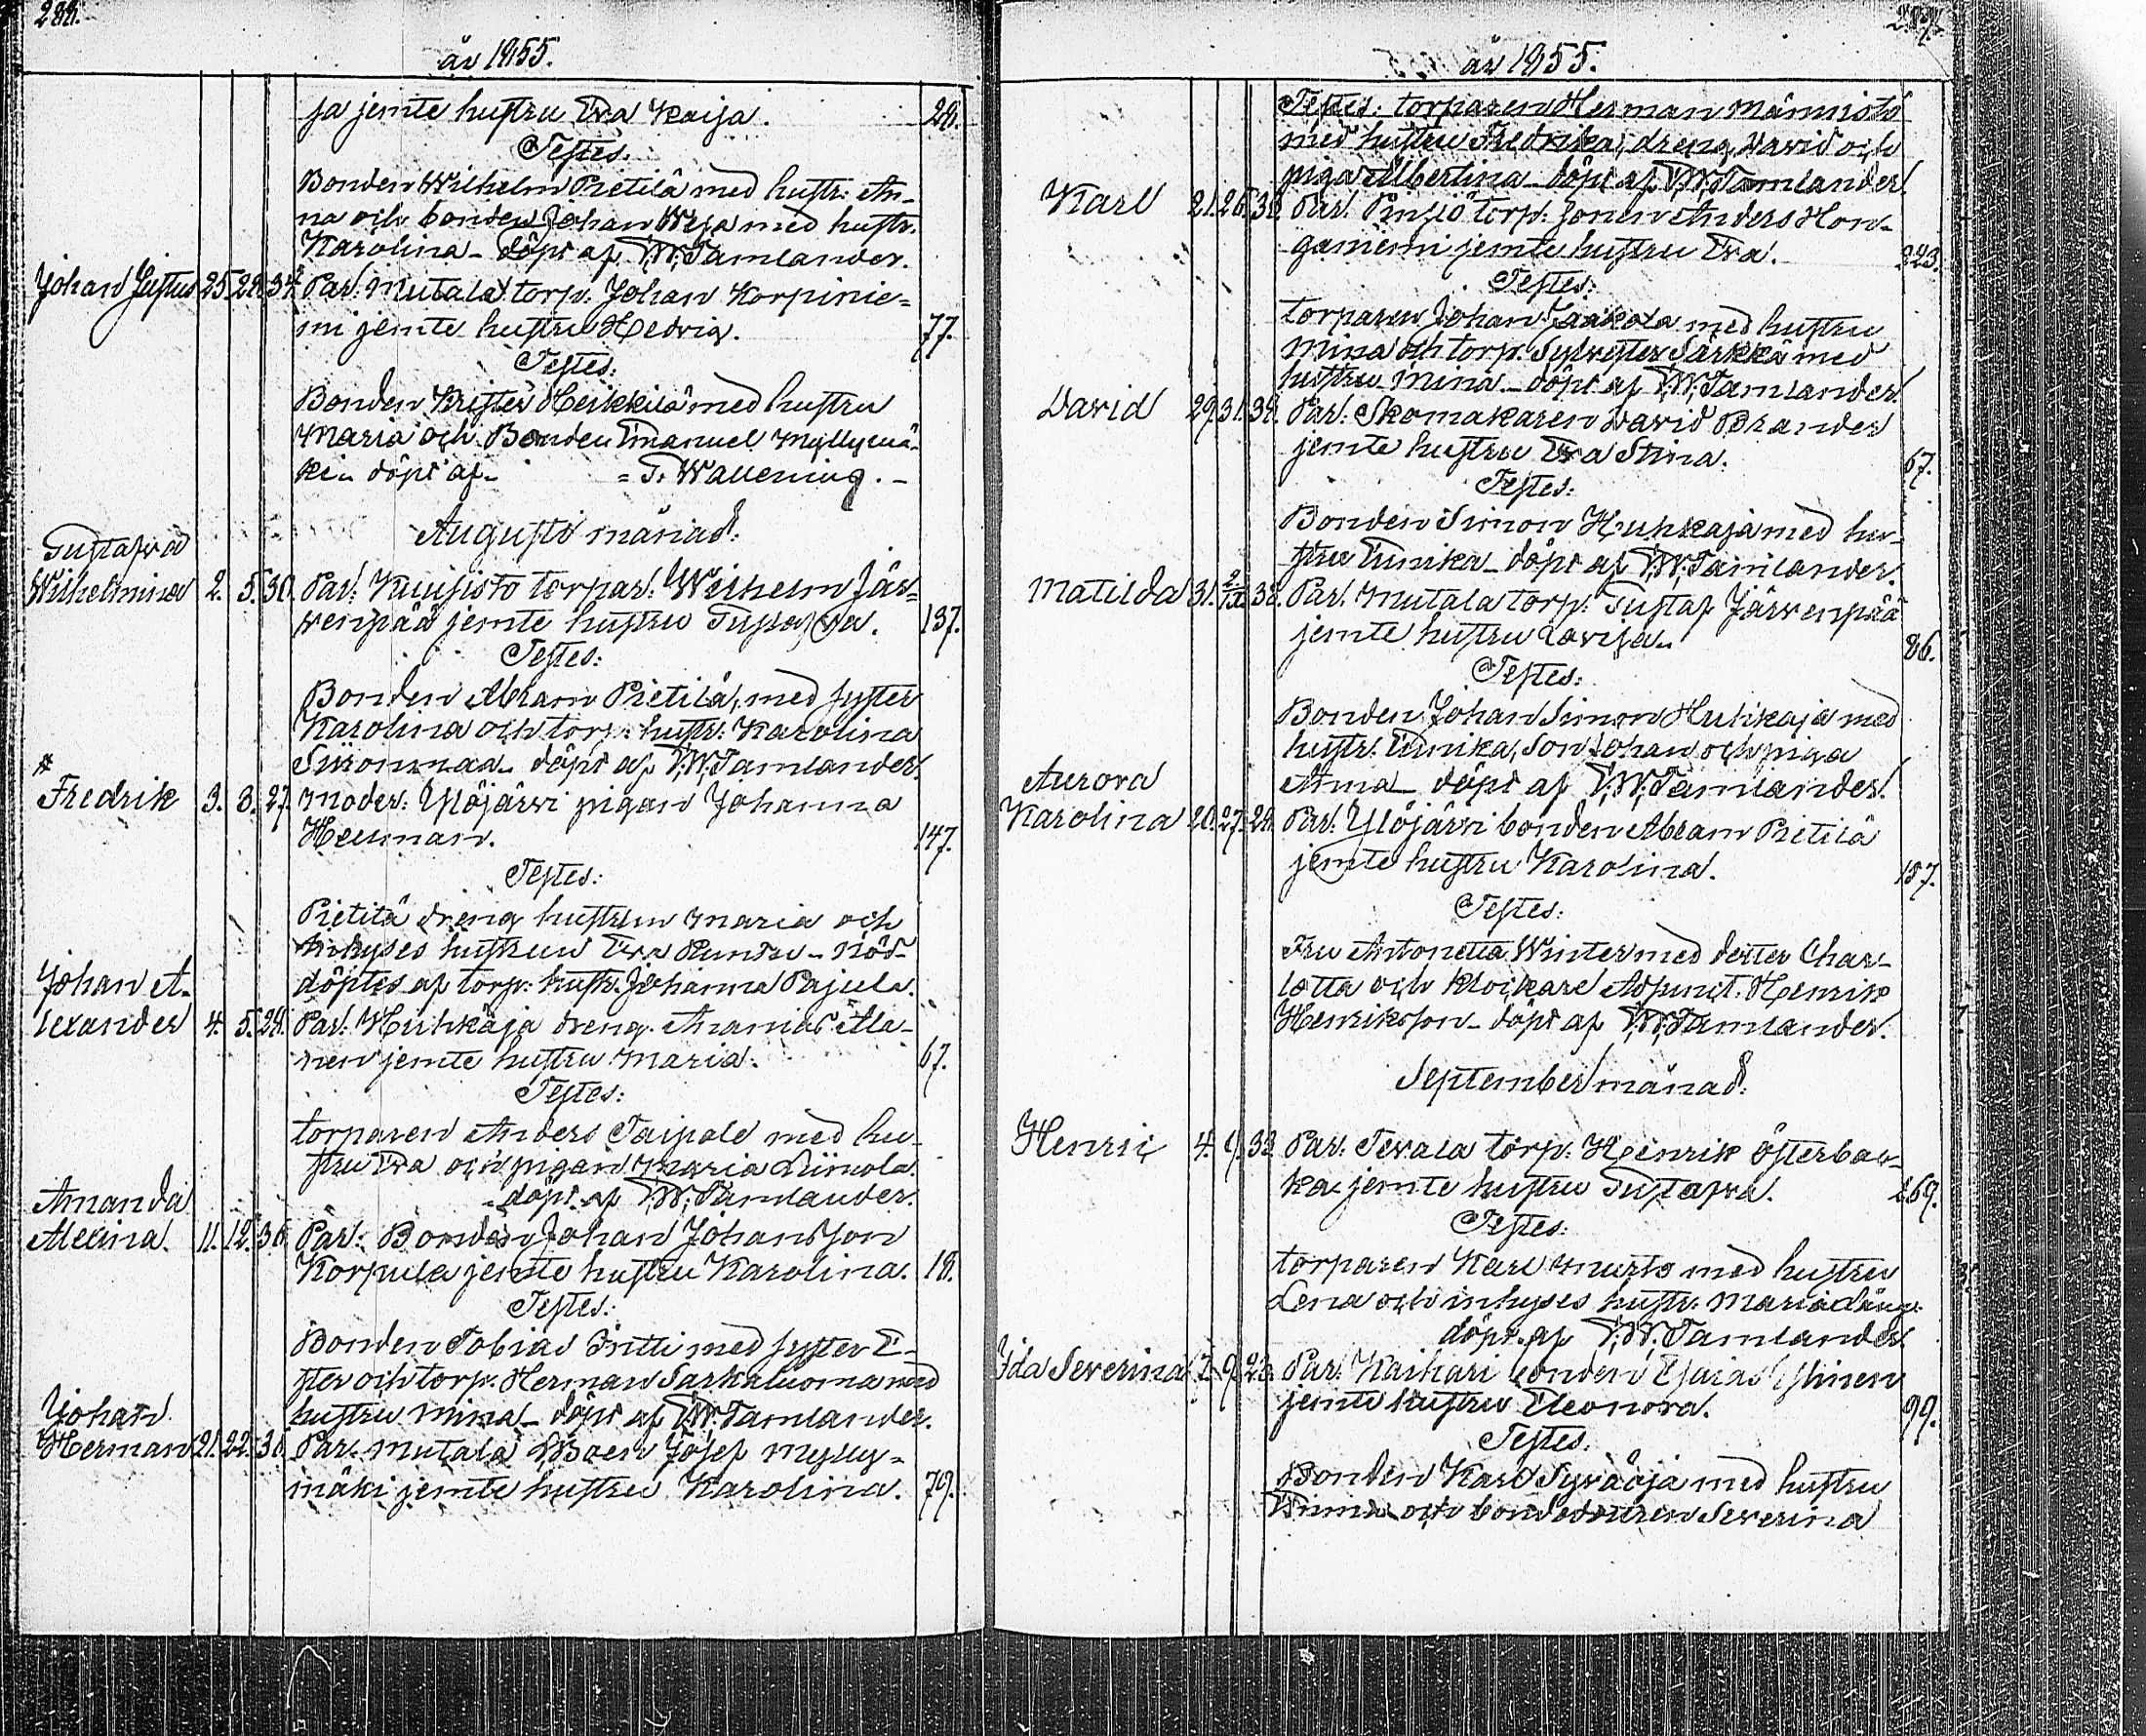 288.
år 1855.
ja jemte hustru Eva Kaija. 28.
Testes.
Bonden Wilhelm Pietilä med hustr: An-
na och bonden Johan Weja med hustr.
Karolina - döpt af W. Tamlander.
Johan Justus 25. 29. 34. Par: Mutala torp. Johan Korpinie=
mi jemte hustru Hedvig. 77.
Testes:
Bonden Krister Heikkilä med hustru
Maria och Bonden Emanuel Myllymä-
ki - döpt af - = T. Wallening. -
Augusti månad:
Gustafva
Wilhelmina 2. 5. 30. Par: Kuusisto torpar: Wilhelm Jär=
venpää jemte hustru Gustafva. 137.
Testes:
Bonden Abram Pietilä, med syster
Karolina och torp: hustr: Karolina
Siironmaa - döpt af W. Tamlander.
Fredrik 3. 3. 27. Moder: Ylöjärvi pigan Johanna
Heurman. 147.
Testes:
Pietilä dreng hustrun Maria och
inhyses hustrun Eva - Nöd-
döptes af torp: hustr. Johanna Pajula.
Johan A-
lexander 4. 5. 28. Par: Huhkaja dreng. Ananias Ala-
nen jemte hustru Maria. 67.
Testes:
torparen Anders Taipale med hu-
stru Eva och pigan Maria Liinola.
döpt af W. Tamlander.
Amanda
Alexina. 11. 12. 36. Par: Bonden Johan Johansson
Korpula jemte hustru Karolina. 18.
Testes:
Bonden Tobias Intti med syster E-
ster och torp. Herman Sarkaluoma med
hustru Mina - döpt af W. Tamlander.
Johan
Herman 21. 22. 36. Par. Mutala Boen Josef Mylly-
mäki jemte hustru Karolina. 79.
år 1855.
Testes: torparen Herman Männistö
med hustru Fredrika, dreng David och
piga Albertina - döpt af W. Tamlander.
Karl 21. 26. 38. Par. Pinsiö torp: sonen Anders Hon-
ganiemi jemte hustru Eva. 223.
Testes:
torparen Johan Jaakola med hustru
Mina och torp. Sylvester Särkkä med
hustru Mina - döpt af W. Tamlander.
David 29. 31. 39. Par: Skomakaren David Brander
jemte hustru Eva Stina. 67.
Testes:
Bonden Simon Huhkaja med hu-
stru Ennika - döpt af W. Tamlander.
Matilda 31. 2/IX 38. Par. Mutala torp: Gustaf Järvenpää
jemte hustru Lovisa. 86.
Testes:
Bonden Johan Simon Huhkaja med
hustr. Ennika, Son Johan och piga
Anna - döpt af W. Tamlander.
Aurora
Karolina 20. 27. 28. Par. Ylöjärvi bonden Abram Pietilä
jemte hustru Karolina. 157.
Testes:
Fru Antonetta Winter med dotter Char-
lotta och klockare Adjunct. Henrik
Henriksson - döpt af W. Tamlander.
September månad:
Henric 4. 9. 33. Par: Tevala torp. Henrik Österbac-
ka jemte hustru Gustafva. 269.
Testes:
torparen Karl Murto med hustru
Lena och inhyses hustr. Maria Läng.
döpt af W. Tamlander.
Ida Severina 7. 9. 23. Par: Kaihari bonden Esaias
jemte hustru Eleonora. 99.
Testes.
Bonden Karl Syväoja med hustru
Emma och bondedottren Severina